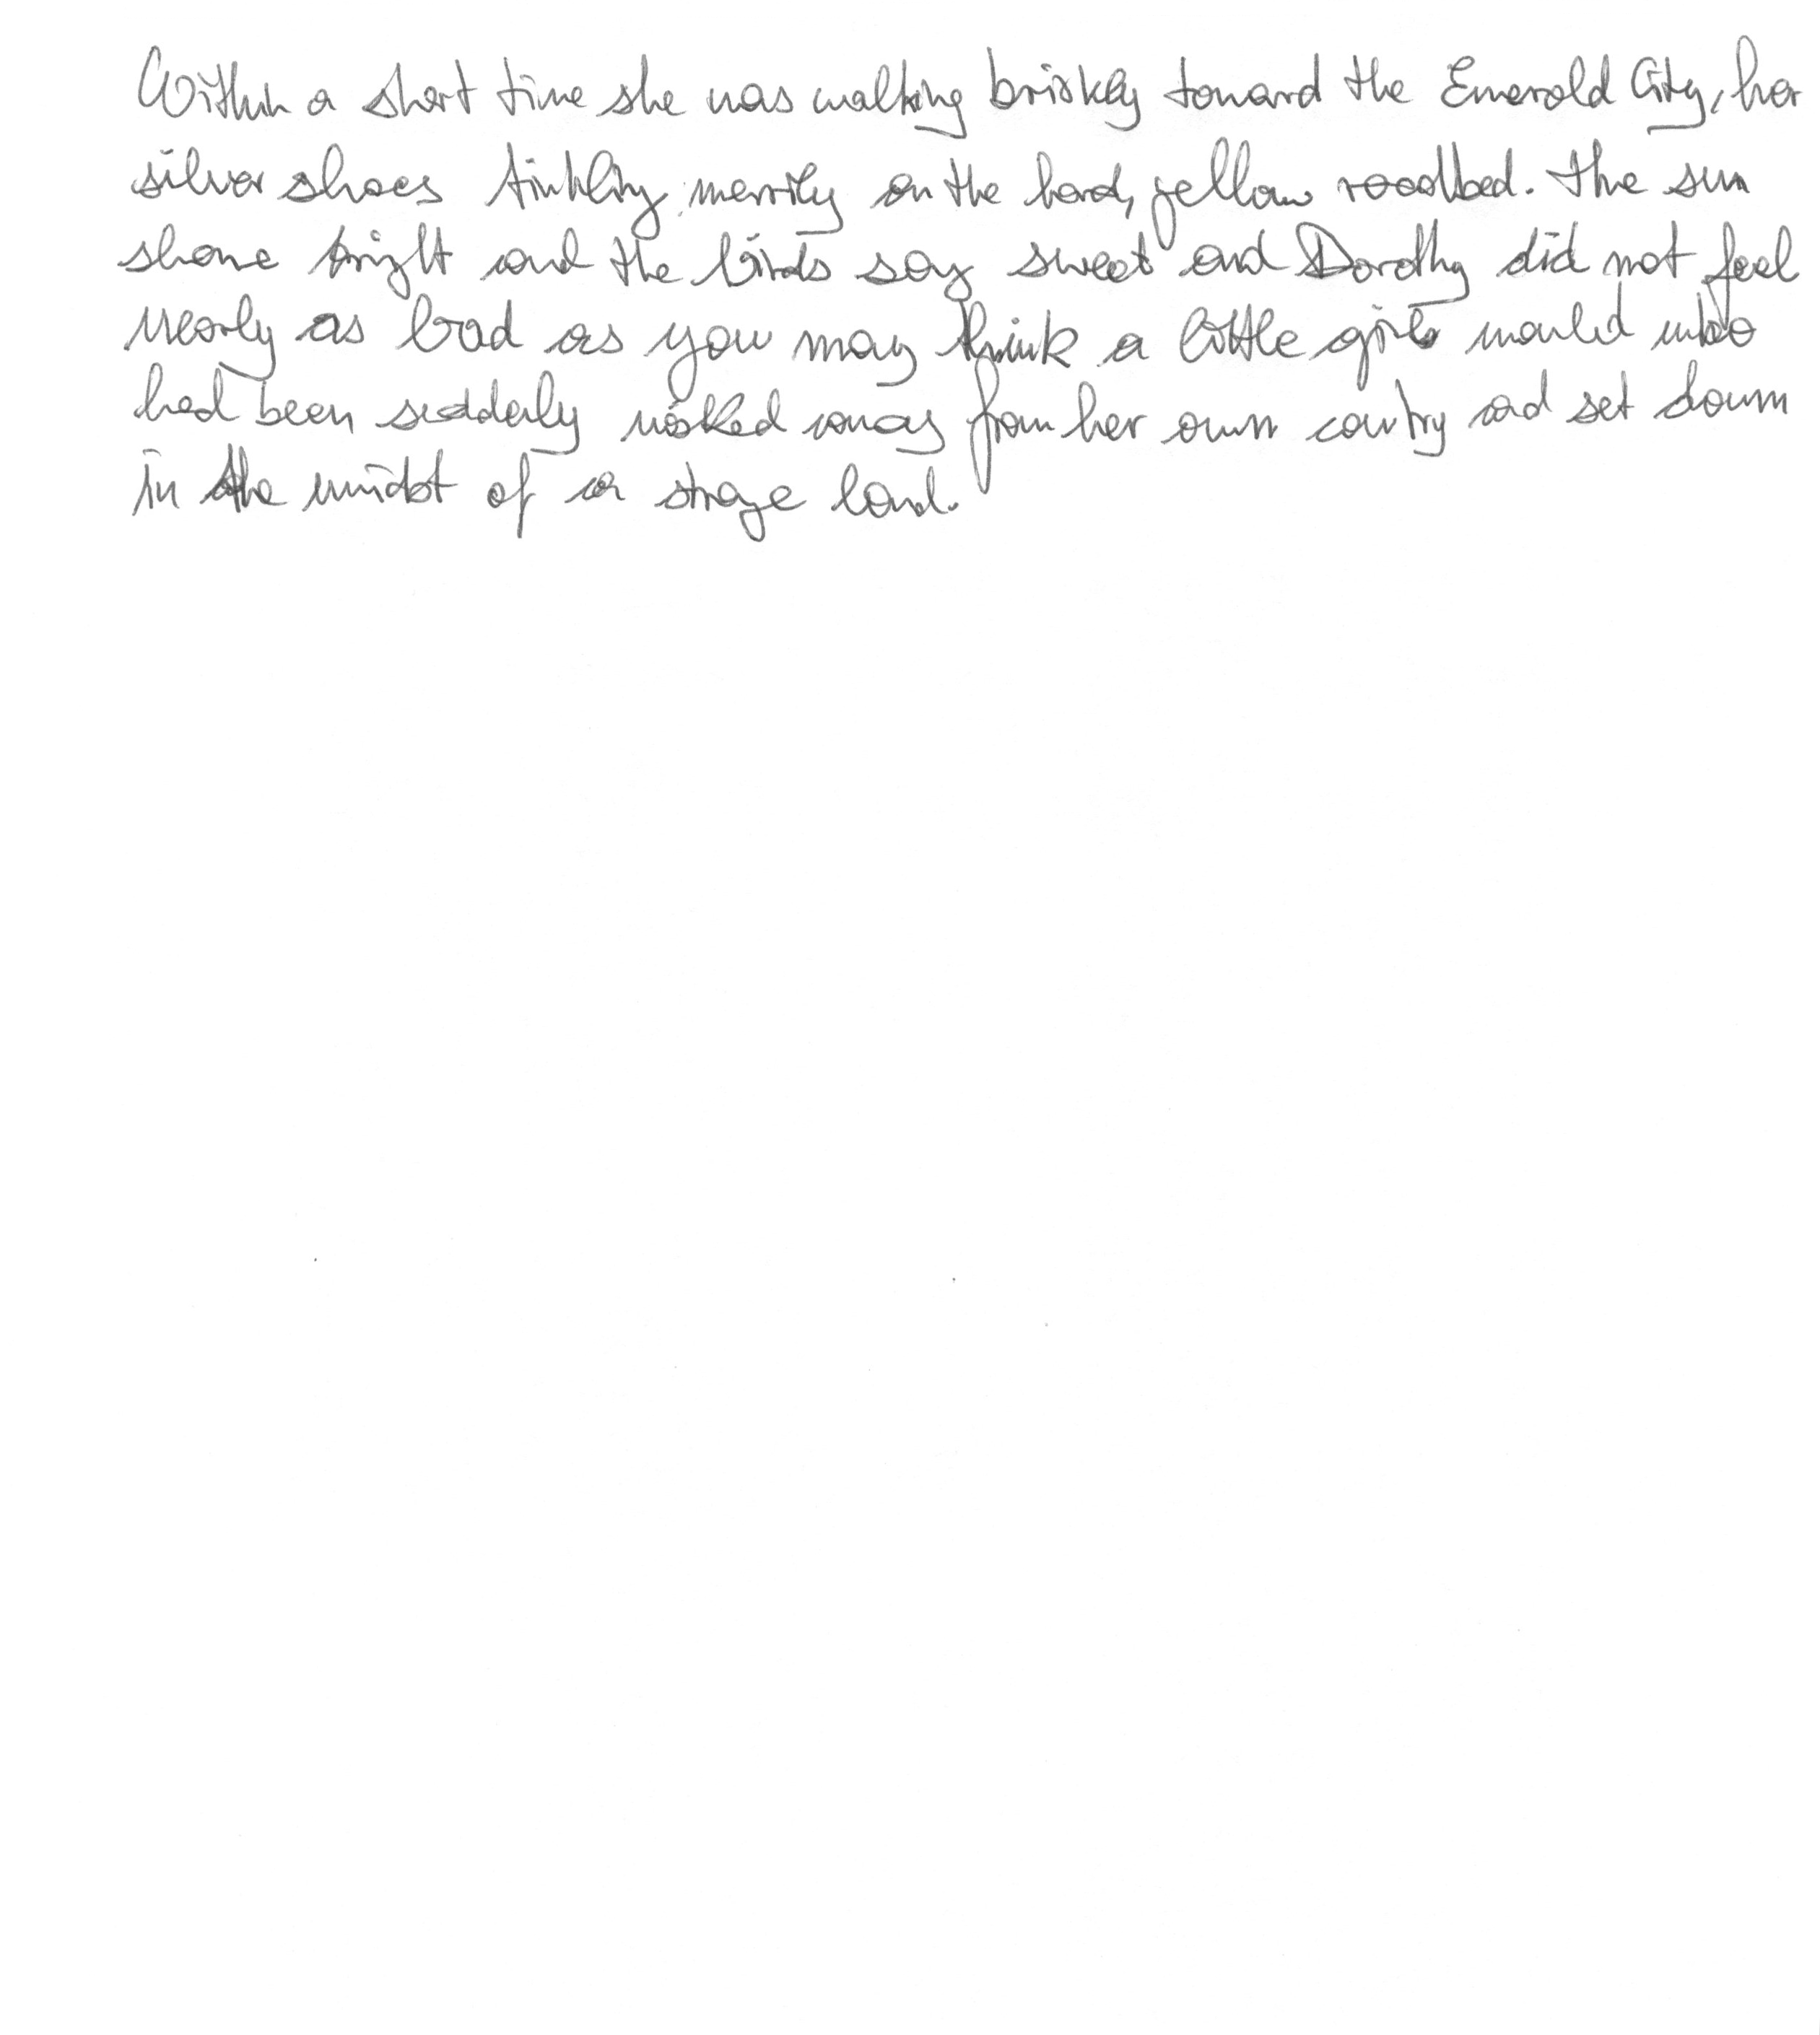 Within a short time she was walking briskly toward the Emerald City, her
silver shoes tinkling merrily on the hard, yellow roadbed. The sun
shone bright and the birds sang sweet and Dorothy did not feel
nearly as bad as you may think a little girl would who
had been suddenly whisked away from her own country and set down
in the midst of a strange land.